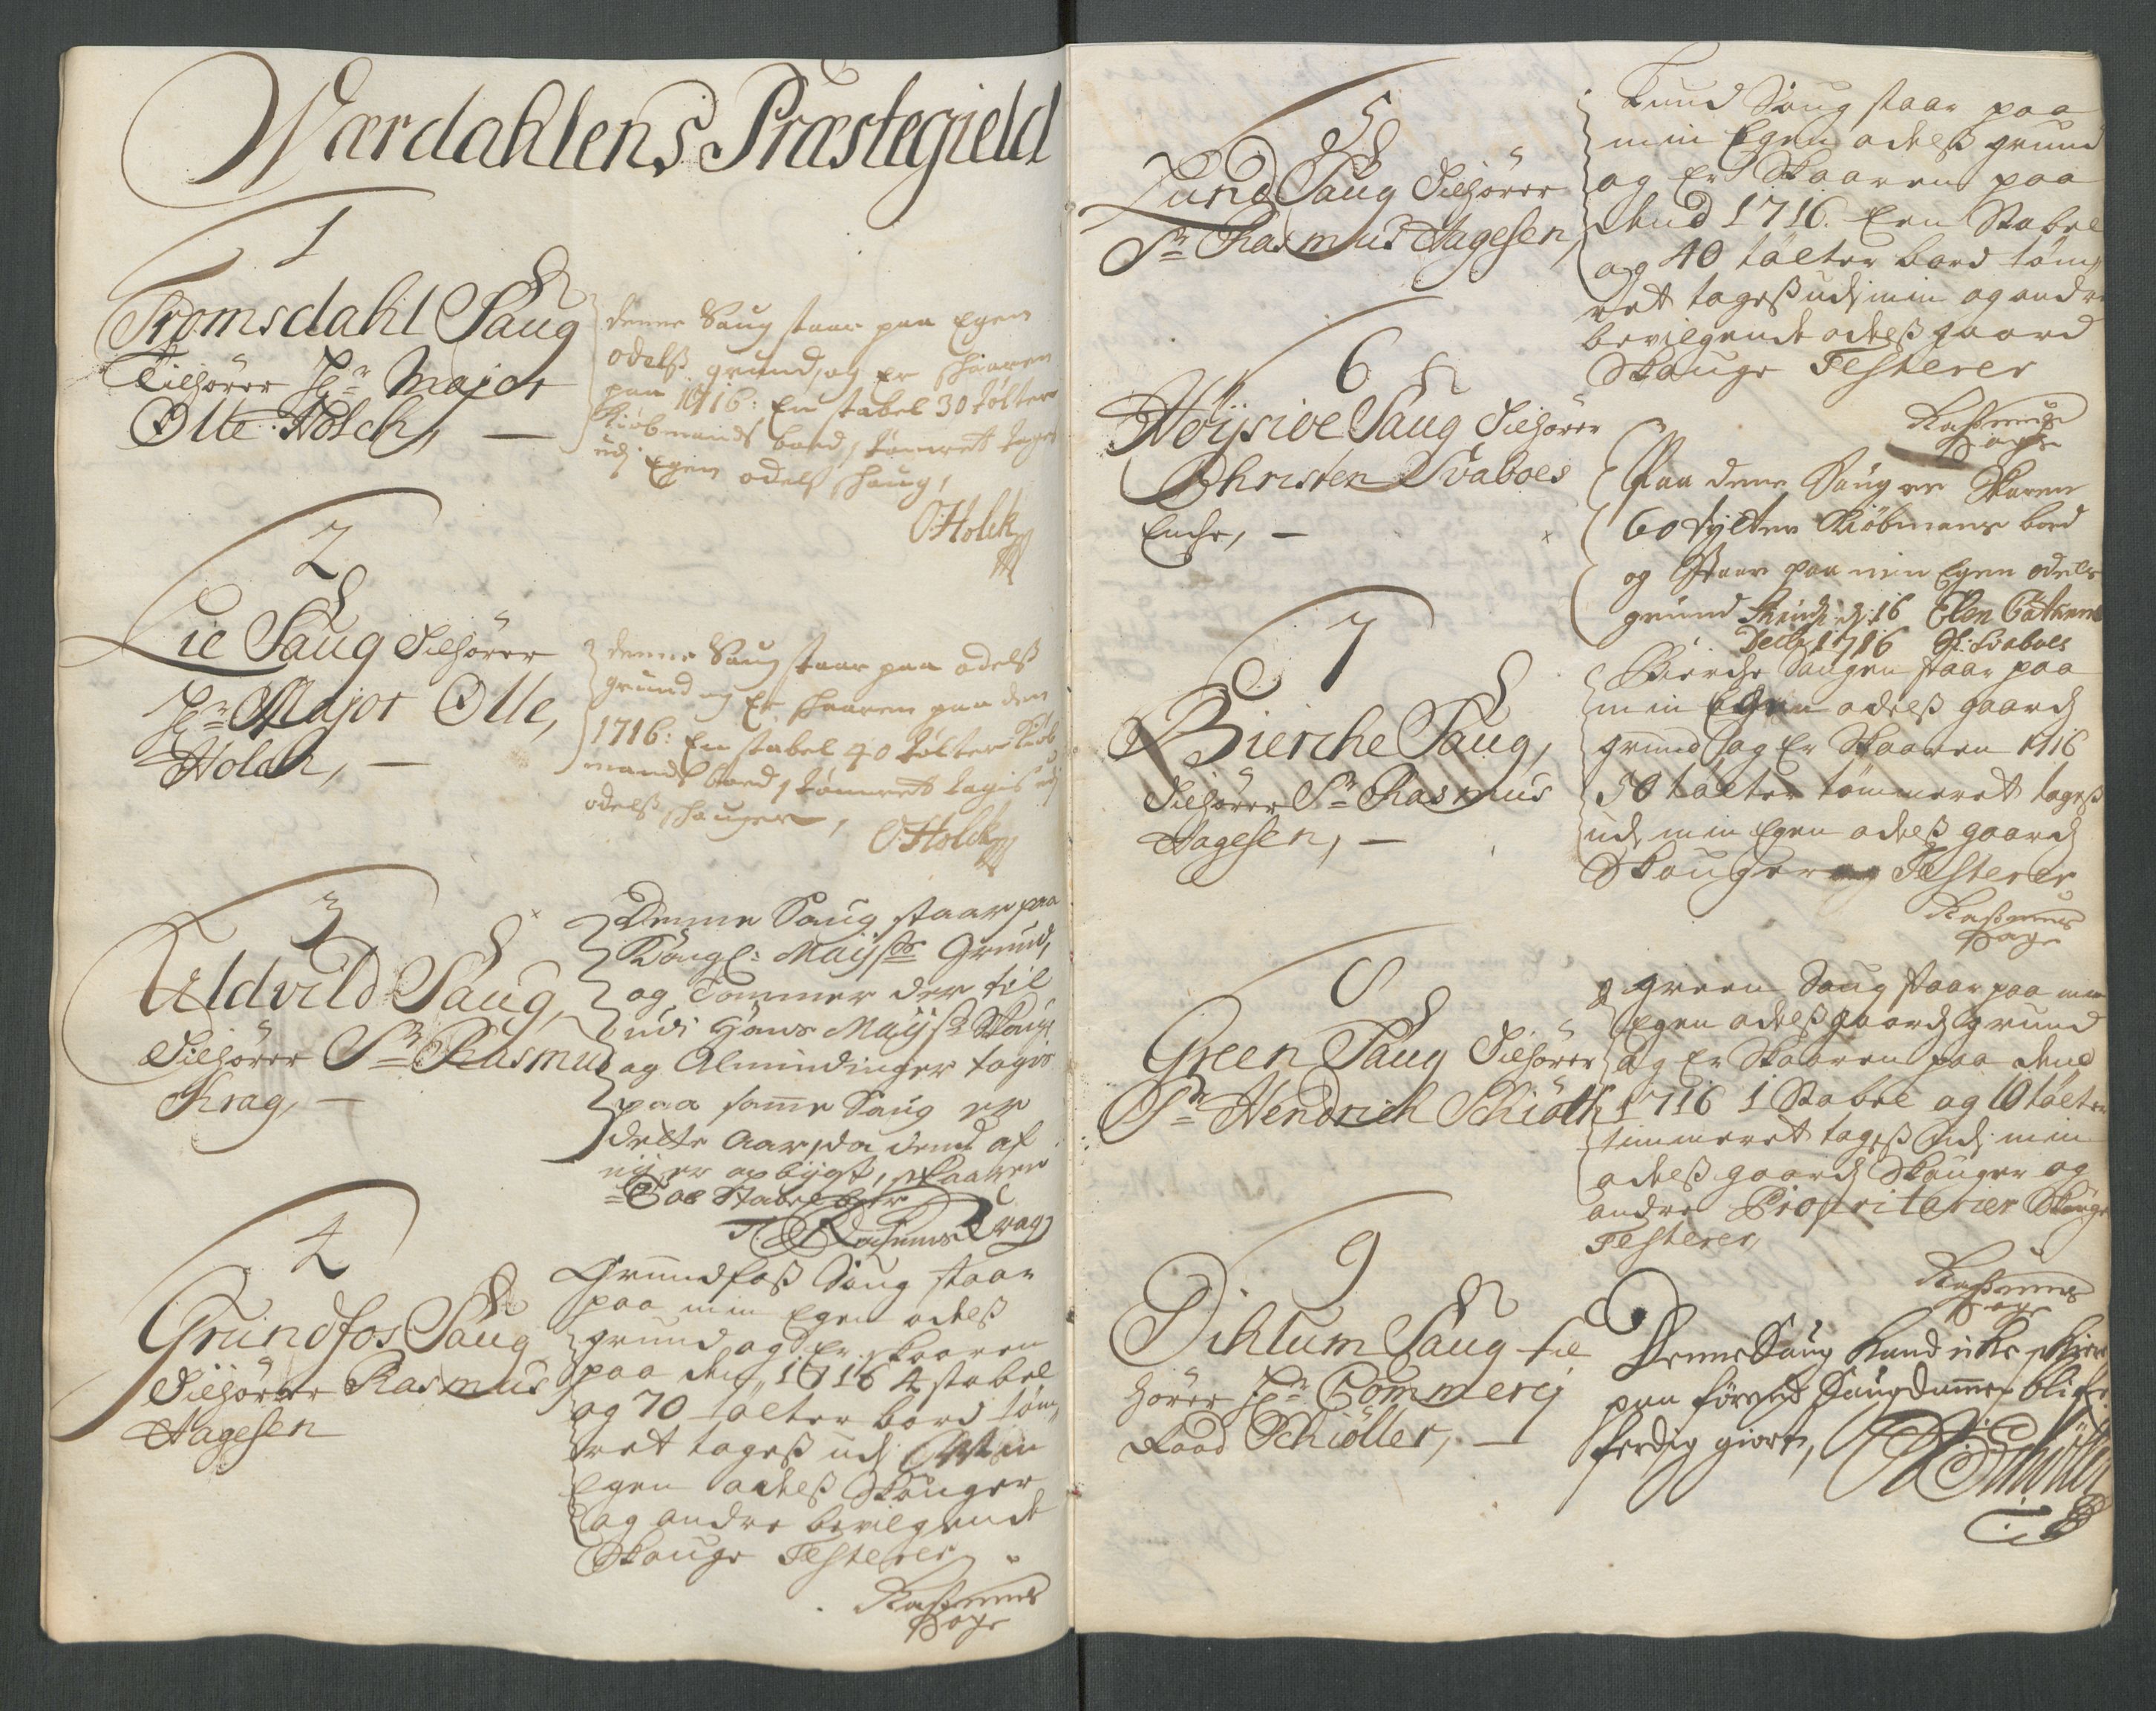 Værdahlens Præstegield
1
Tromsdahl Saug
Tilhører Hr Major
Olle Holch, —
denne Saug staar paa Egen
odelß grund, og er skaaren
paa 1716: En stabel 30 tölter
Kiöbmands bord, tömret tages
udj Egen odelß skaug,
O Holck
2
Lie Saug Tilhører
Hr Major Olle,
Holch, —
denne Saug staar paa odelß
grund og Er skaaren paa den
1716: En stabel 40 tölter Kiöb
mands bord, tömret tagis udj
odelß skauger,
O Holck
3
Uldvild Saug,
Tilhører Sr Rasmus
Krag, —
Denne Saug staar paa
Kongl: Mayst Grund,
og Tømmer der til
udi Hans Mayst Skoug
og Almindinger tagis
paa samme Saug er
dette Aar, da dend af
nÿ er opbÿgt, skaaren
Toe Stabelber
Rasmus Krag
4
Grundfos Saug
Tilhører Rasmus
Hagesen
Grundfoß Saug staar
paa min Egen odelß
grund og Er skaaren
paa den 1716 4 stabel
og 70 tölter bord töm,,
ret tageß udj Min
Egen odelß Skauger
og andre bevilgende
Skauge Festerer
Raßmus
Hage
5
Lund Saug Tilhører
Sr Rasmus Hagesen,
Lund Saug staar paa
min Egen odelß grund
og Er Skaaren paa
dend 1716. Een Stabel
og 40 tölter bord töm,,
ret tageß udj min og andre
bevilgende odelß gaard
Skauge Festerer
Raßmus
Hage
6
Höÿsioe Saug Tilhører
Christen Svaboes
Enche, —
Paa dene Saug er Skaren
60 Tylter Kiöbmans bord
og Staar paa min Egen odels
grund d: 16 Elen Cathrine
Decb 1716 Sl: Svaboes
7
Bierche Saug,
Tilhører Sr Rasmus
Hagesen, —
Bierche Saugen staar paa
min Egen odelß gaardß
grund og Er Skaaren 1716
50 tölter tömmeret tageß
udj min Egen odelß gaardß
Skauger og Festerer
Raßmus
Hage
8
Green Saug Tilhører
Sr Hendrich Schiöth
Green Saug staar paa min
Egen odelß gaardß grund
og Er Skaaren paa dend
1716 1 Stabel og 10 tölter
timmeret tageß udj min
odelß gaardß Skauger og
andre Propritarier Skauge
Festerer,
Raßmus
Hage
9
Dihlum Saug til
hörer Hr Commercj
Raad Schiöller, —
Denne Saug Kand icke skiær
paa förend Saugdammen blifr
ferdig giort,
Schöller